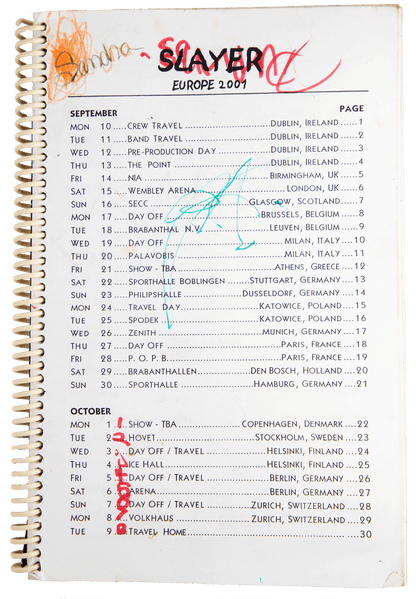 Sandra
SLAYER
EUROPE 2001
SEPTEMBER PAGE
MON 10.....CREW TRAVEL...DUBLIN, IRELAND....1
TUE 11.....BAND TRAVEL...DUBLIN, IRELAND....2
WED 12.....PRE-PRODUCTION DAY...DUBLIN, IRELAND....3
THU 13.....THE POINT...DUBLIN, IRELAND....4
FRI 14.....NIA...BIRMINGHAM, UK....5
SAT 15.....WEMBLEY ARENA...LONDON, UK....6
SUN 16.....SECC...GLASGOW, SCOTLAND....7
MON 17.....DAY OFF...BRUSSELS, BELGIUM....8
TUE 18.....BRABANTHAL N.V....LEUVEN, BELGIUM....9
WED 19.....DAY OFF...MILAN, ITALY....10
THU 20.....PALAVOBIS...MILAN, ITALY....11
FRI 21.....SHOW - TBA...ATHENS, GREECE....12
SAT 22.....SPORTHALLE BOBLINGEN...STUTTGART, GERMANY....13
SUN 23.....PHILIPSHALLE...DUSSELDORF, GERMANY....14
MON 24.....TRAVEL DAY...KATOWICE, POLAND....15
TUE 25.....SPODEK...KATOWICE, POLAND....16
WED 26.....ZENITH...MUNICH, GERMANY....17
THU 27.....DAY OFF...PARIS, FRANCE....18
FRI 28.....P. O. P. B....PARIS, FRANCE....19
SAT 29.....BRABANTHALLEN...DEN BOSCH, HOLLAND....20
SUN 30.....SPORTHALLE...HAMBURG, GERMANY....21
OCTOBER
MON 1.....SHOW - TBA...COPENHAGEN, DENMARK....22
TUE 2.....HOVET...STOCKHOLM, SWEDEN....23
WED 3.....DAY OFF / TRAVEL...HELSINKI, FINLAND....24
THU 4.....ICE HALL...HELSINKI, FINLAND....25
FRI 5.....DAY OFF / TRAVEL...BERLIN, GERMANY....26
SAT 6.....ARENA...BERLIN, GERMANY....27
SUN 7.....DAY OFF / TRAVEL...ZURICH, SWITZERLAND....28
MON 8.....VOLKHAUS...ZURICH, SWITZERLAND....29
TUE 9.....TRAVEL HOME...30